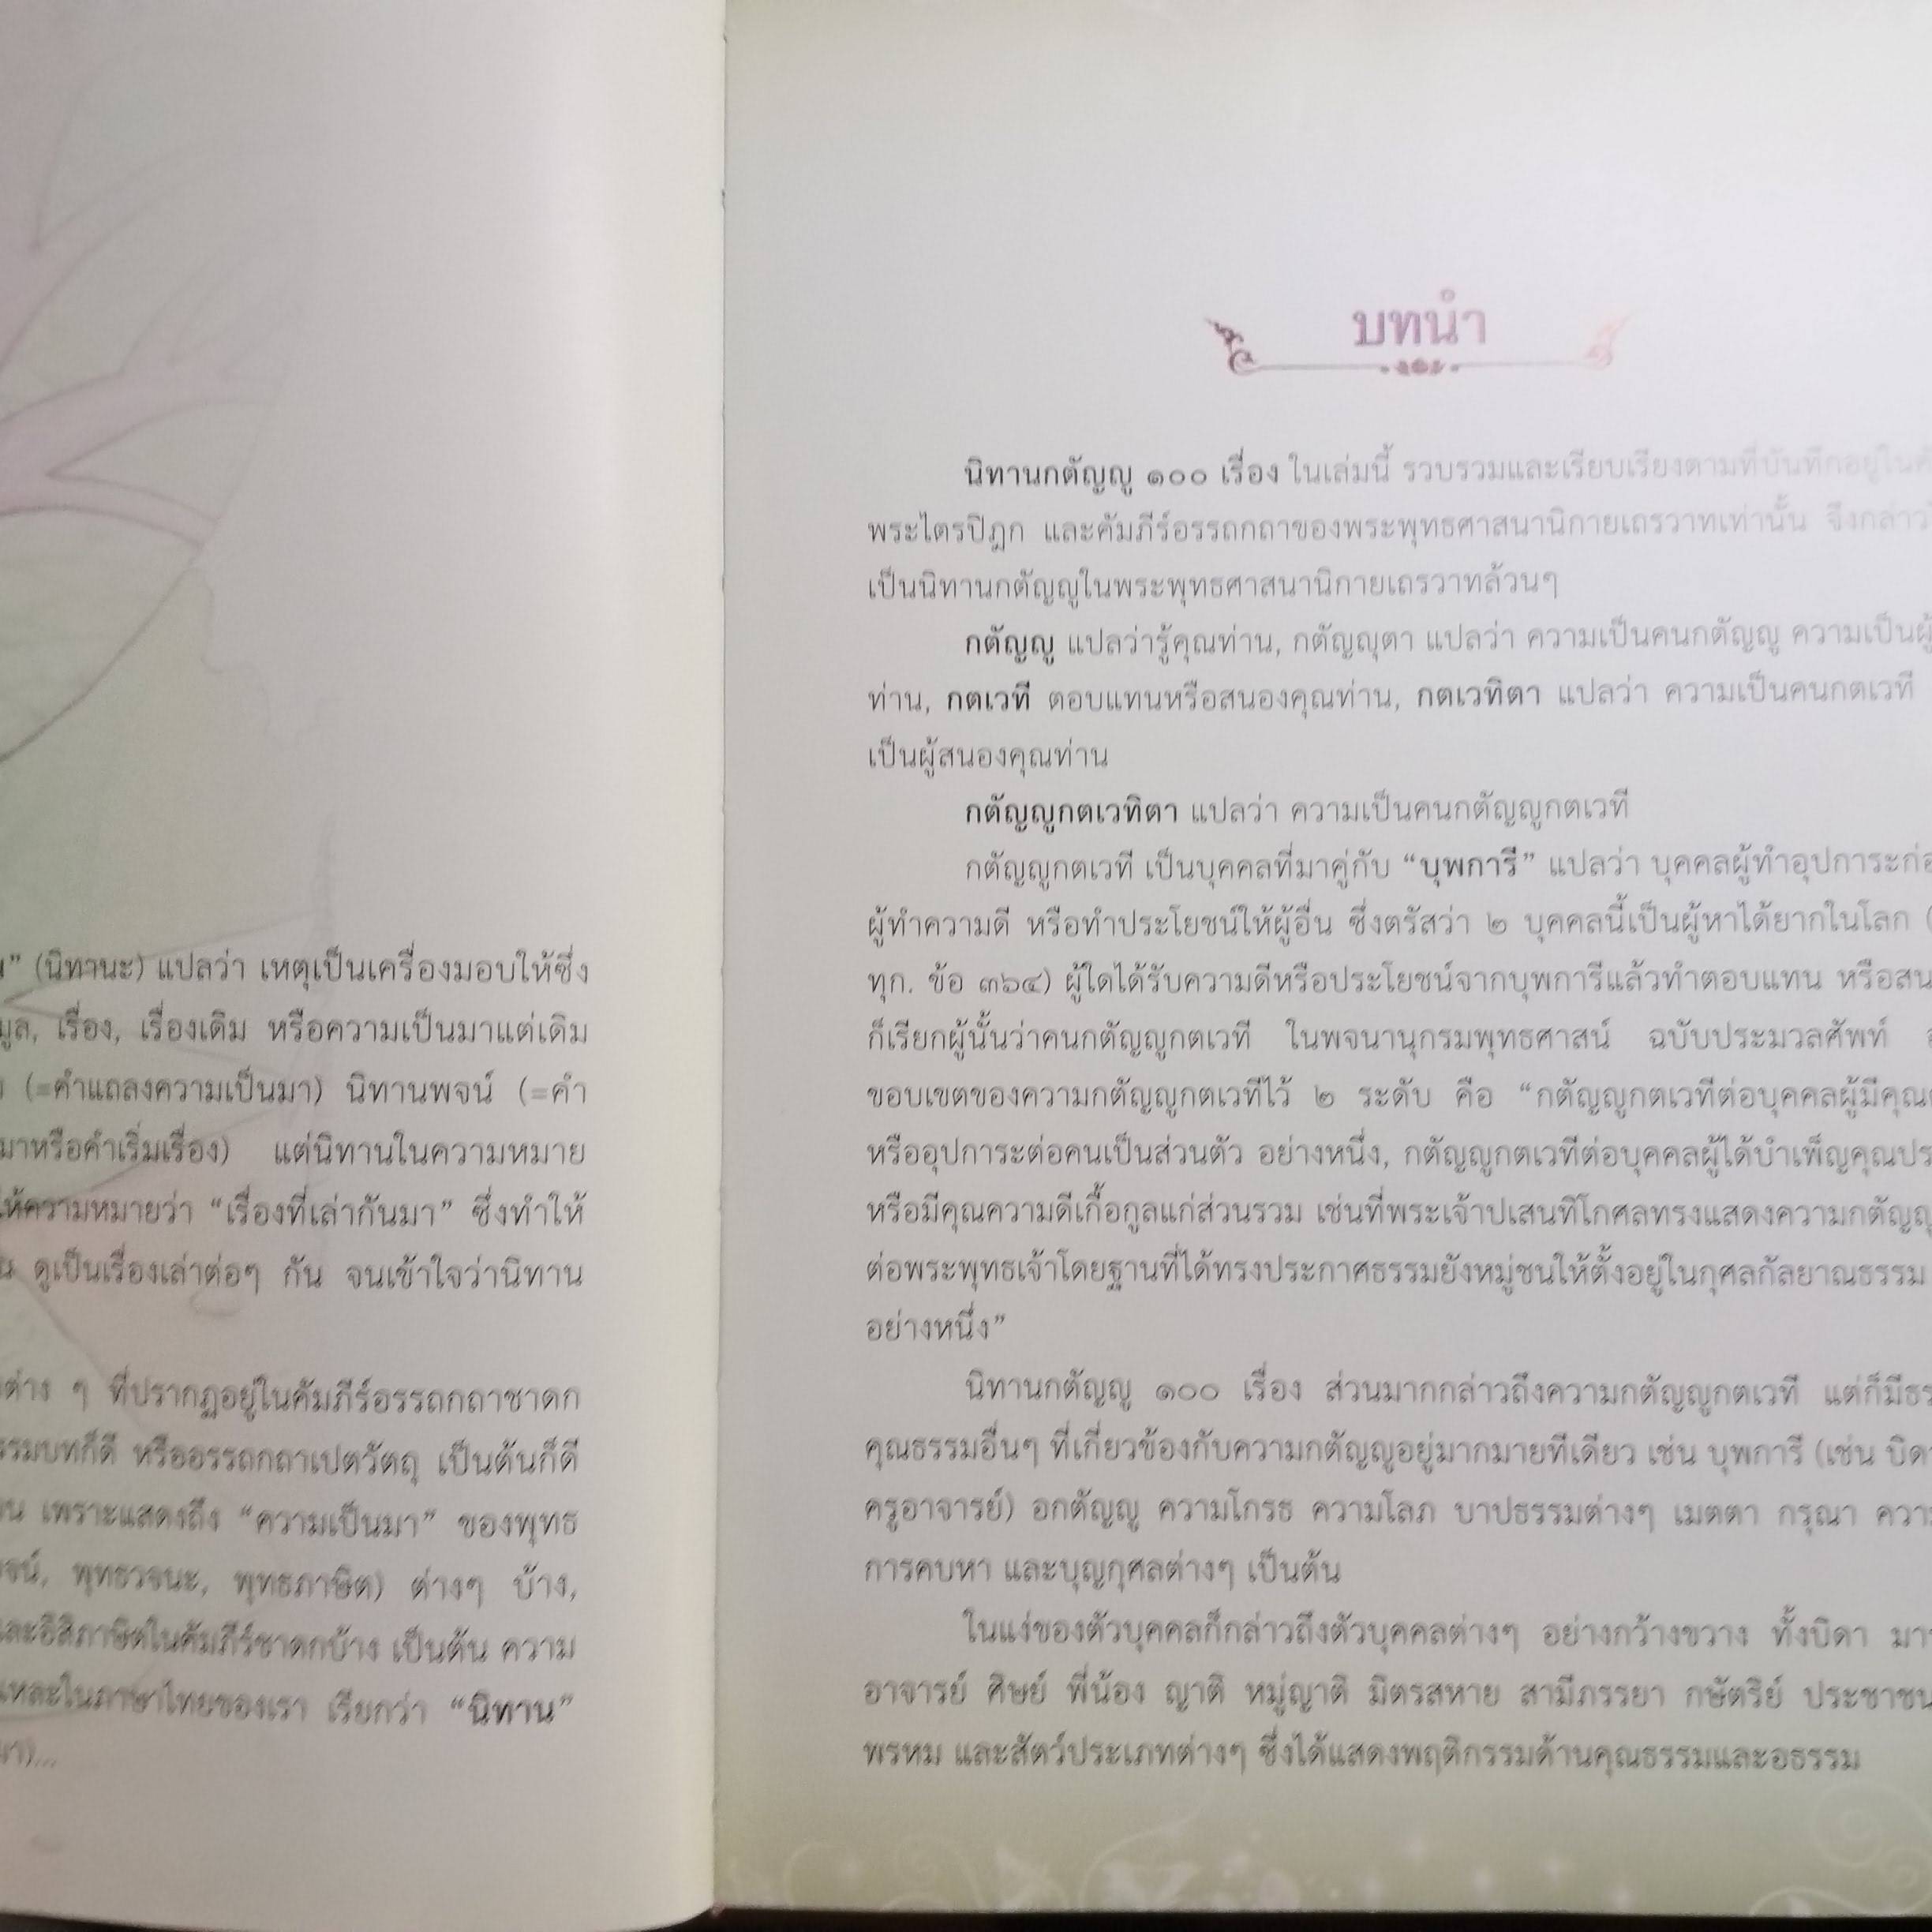 (นิทานะ) แปลว่า เหตุเป็นเครื่องมอบให้ซึ่ง
เรื่อง, เรื่องเดิม หรือความเป็นมาแต่เดิม
(=คำแถลงความเป็นมา) นิทานพจน์ (=คำ
มาหรือคำเริ่มเรื่อง) แต่นิทานในความหมาย
ให้ความหมายว่า “เรื่องที่เล่ากันมา” ซึ่งทำให้
ดูเป็นเรื่องเล่าต่อๆ กัน จนเข้าใจว่านิทาน
ต่าง ๆ ที่ปรากฏอยู่ในคัมภีร์อรรถกถาชาดก
รรมบทก็ดี หรืออรรถกถาเปตวัตถุ เป็นต้นก็ดี
เพราะแสดงถึง “ความเป็นมา” ของพุทธ
พุทธวจนะ, พุทธภาษิต) ต่างๆ บ้าง,
และอิสิภาษิตในคัมภีร์ชาดกบ้าง เป็นต้น ความ
แหละในภาษาไทยของเรา เรียกว่า “นิทาน”
บทนำ
นิทานกตัญญู ๑๐๐ เรื่อง ในเล่มนี้ รวบรวมและเรียบเรียงตามที่บันทึกอยู่ใน
พระไตรปิฎก และคัมภีร์อรรถกถาของพระพุทธศาสนานิกายเถรวาทเท่านั้น จึงกล่าว
เป็นนิทานกตัญญูในพระพุทธศาสนานิกายเถรวาทล้วนๆ
กตัญญู แปลว่ารู้คุณท่าน, กตัญญุตา แปลว่า ความเป็นคนกตัญญู ความเป็นผู้
ท่าน, กตเวที ตอบแทนหรือสนองคุณท่าน, กตเวทิตา แปลว่า ความเป็นคนกตเวที
เป็นผู้สนองคุณท่าน
กตัญญูกตเวทิตา แปลว่า ความเป็นคนกตัญญูกตเวที
กตัญญูกตเวที เป็นบุคคลที่มาคู่กับ “บุพการี” แปลว่า บุคคลผู้ทำอุปการะก่อ
ผู้ทำความดี หรือทำประโยชน์ให้ผู้อื่น ซึ่งตรัสว่า ๒ บุคคลนี้เป็นผู้หาได้ยากในโลก (
ทุก. ข้อ ๓๖๔) ผู้ใดได้รับความดีหรือประโยชน์จากบุพการีแล้วทำตอบแทน หรือสน
ก็เรียกผู้นั้นว่าคนกตัญญูกตเวที ในพจนานุกรมพุทธศาสน์ ฉบับประมวลศัพท์
ขอบเขตของความกตัญญูกตเวทีไว้ ๒ ระดับ คือ “กตัญญูกตเวทีต่อบุคคลผู้มีคุณ
หรืออุปการะต่อคนเป็นส่วนตัว อย่างหนึ่ง, กตัญญูกตเวทีต่อบุคคลผู้ได้บำเพ็ญคุณปร
หรือมีคุณความดีเกื้อกูลแก่ส่วนรวม เช่นที่พระเจ้าปเสนทิโกศลทรงแสดงความกตัญญู
ต่อพระพุทธเจ้าโดยฐานที่ได้ทรงประกาศธรรมยังหมู่ชนให้ตั้งอยู่ในกุศลกัลยาณธรรม
อย่างหนึ่ง”
นิทานกตัญญู ๑๐๐ เรื่อง ส่วนมากกล่าวถึงความกตัญญูกตเวที แต่ก็มีธร
คุณธรรมอื่นๆ ที่เกี่ยวข้องกับความกตัญญูอยู่มากมายทีเดียว เช่น บุพการี (เช่น บิด
ครูอาจารย์) อกตัญญู ความโกรธ ความโลภ บาปธรรมต่างๆ เมตตา กรุณา ความ
การคบหา และบุญกุศลต่างๆ เป็นต้น
ในแง่ของตัวบุคคลก็กล่าวถึงตัวบุคคลต่างๆ อย่างกว้างขวาง ทั้งบิดา มา
อาจารย์ ศิษย์ พี่น้อง ญาติ หมู่ญาติ มิตรสหาย สามีภรรยา กษัตริย์ ประชาชน
พรหม และสัตว์ประเภทต่างๆ ซึ่งได้แสดงพฤติกรรมด้านคุณธรรมและอธรรม